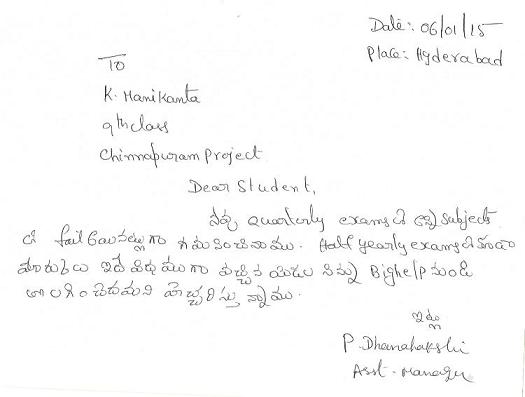 Date: 06/01/15
Place: Hyderabad
To
K. Manikanta
9th class
Chinnapuram Project
Dear Student,
నీవు quarterly exams లో అన్ని subjects
లో fail అయినట్లుగా గమనించినాము. Half yearly exams లో కూడా
మార్కులు ఇదే విధముగా వచ్చిన యెడల నిన్ను Bighelp నుండి
తొలగించెదమని హెచ్చరిస్తున్నాము.
ఇట్లు
P. Dhanalakshi
Asst. Manager